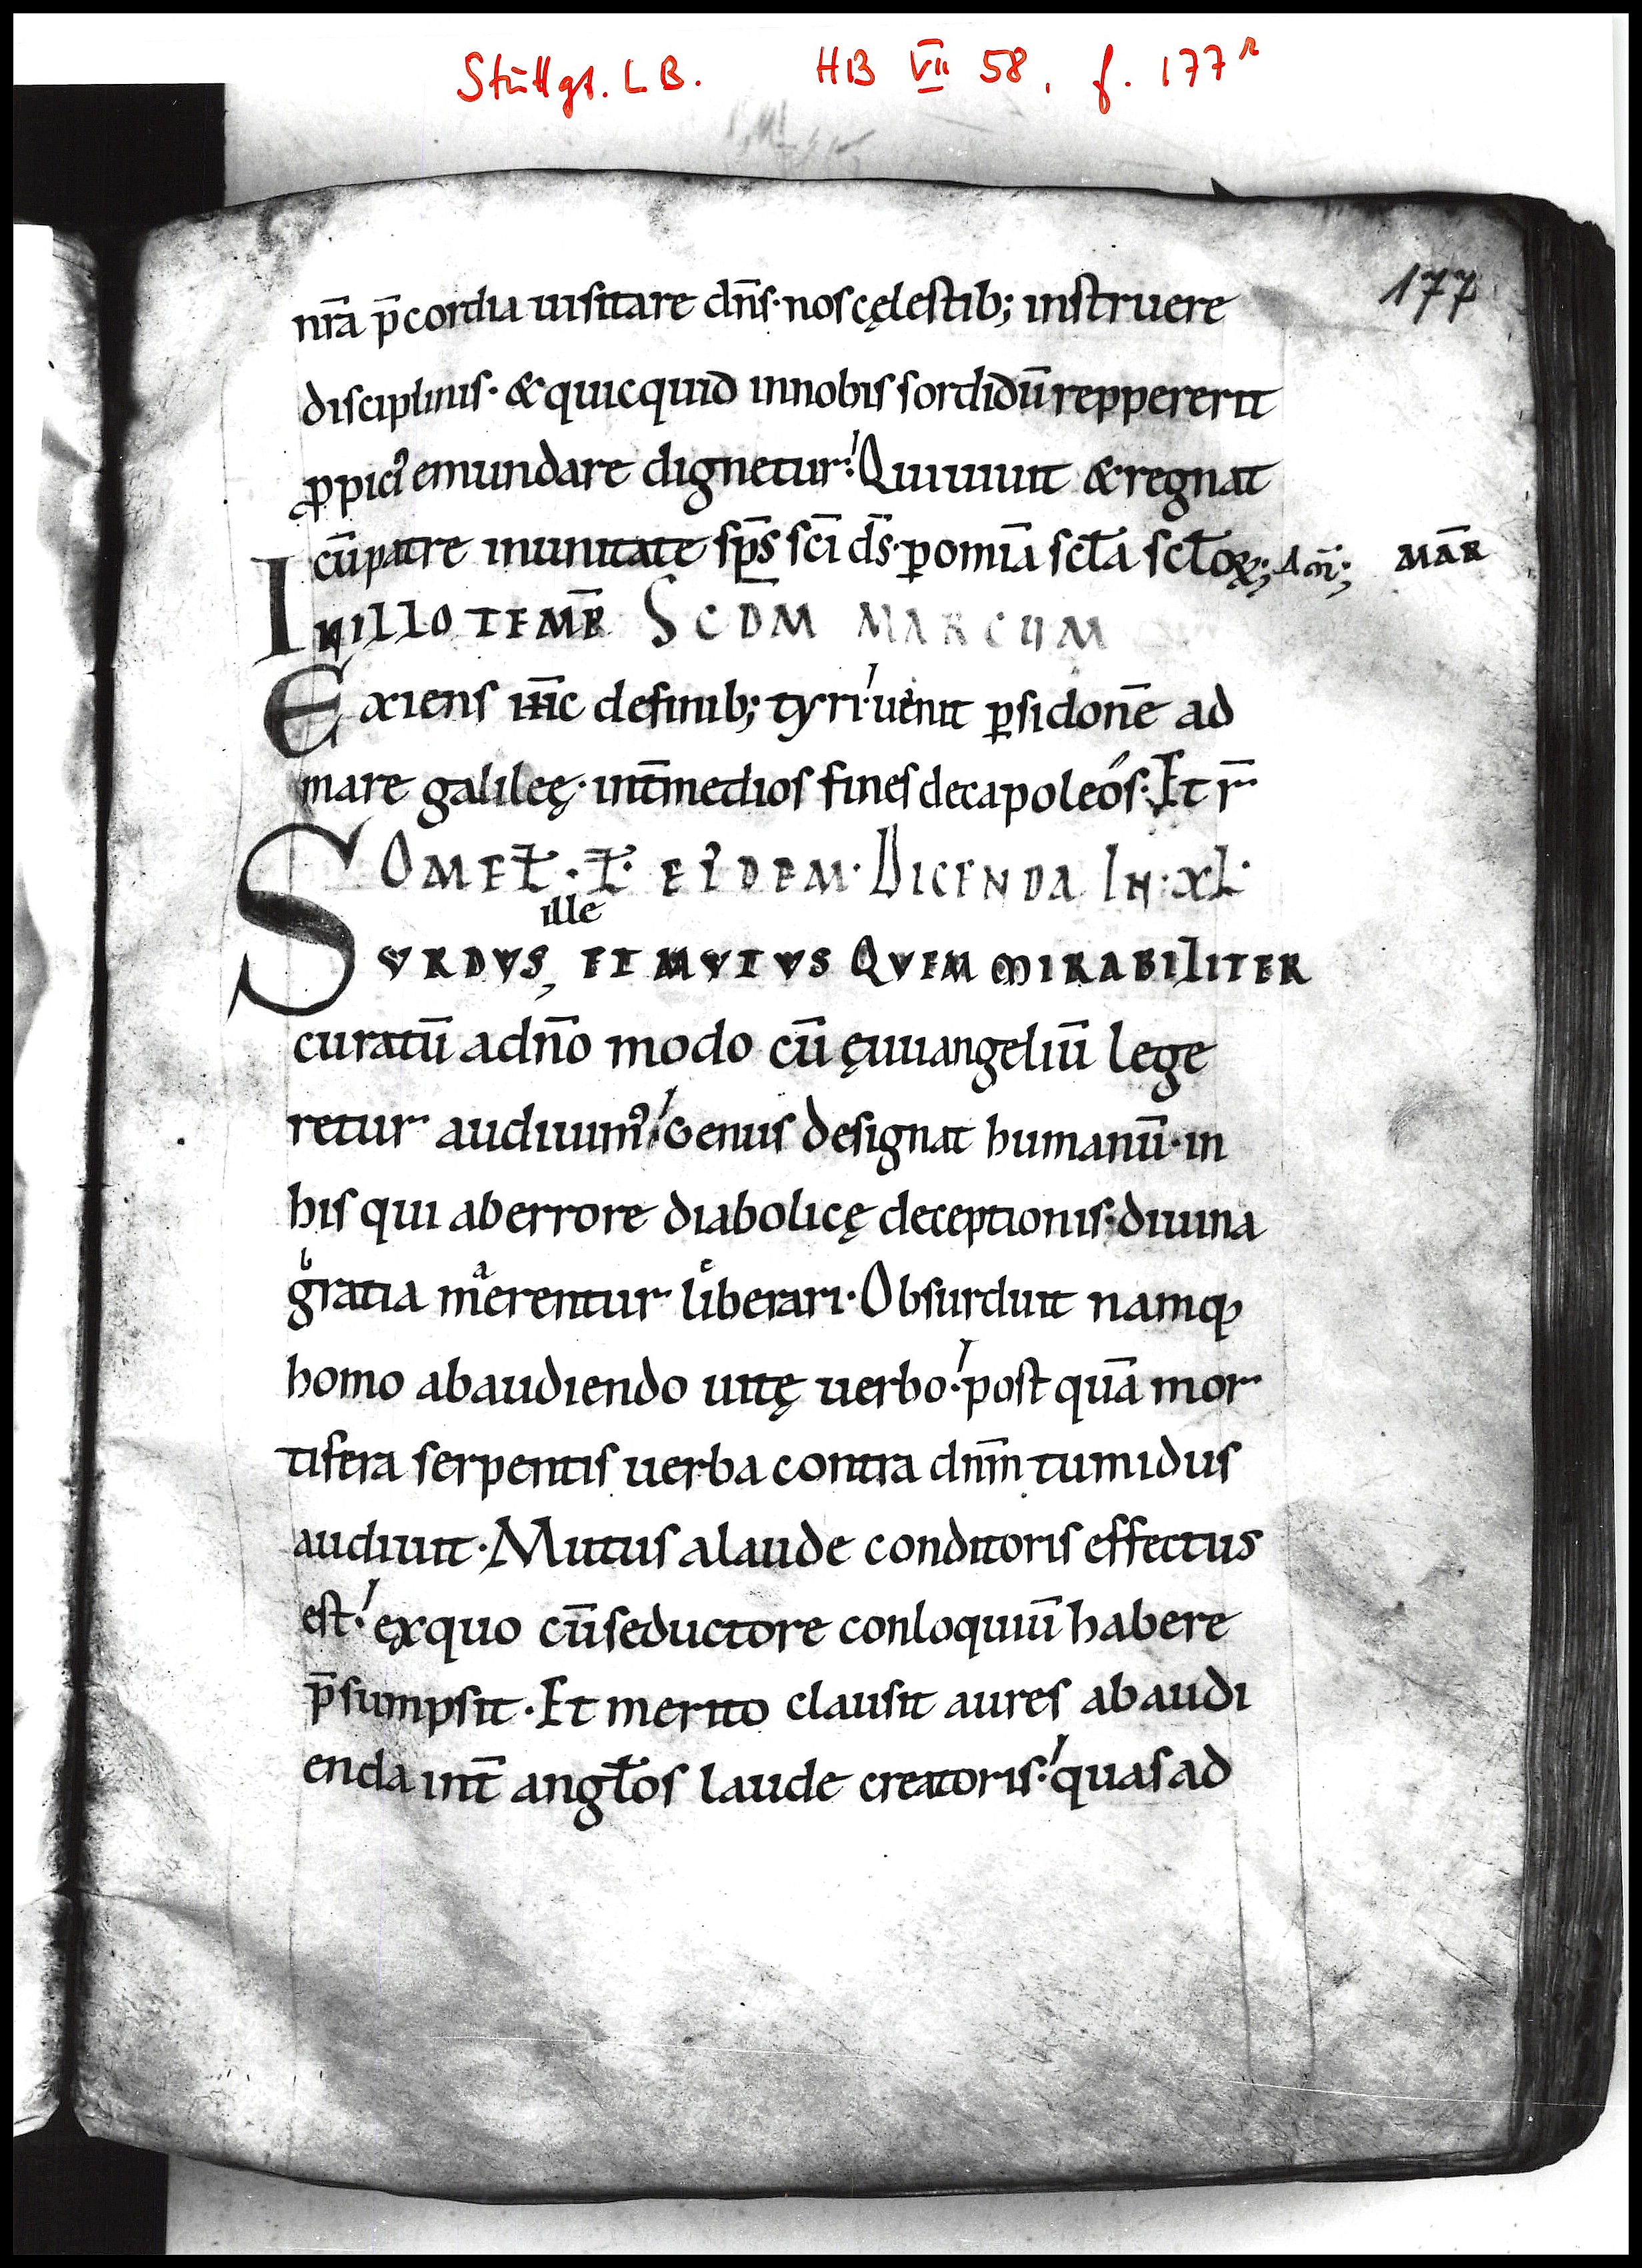 Stuttgt. LB. HB VII 58, f. 177r
177
nr̄a p̄cordia uisitare dn̄s· nos cęlestib; instruere
disciplinis· & quicquid innobis sordidū reppererit
ꝓpici᾿ emundare dignetur: Quiuiuit & regnat
cūpatre inunitate sp̄s sc̄i d̄s· ꝑ om̄ia scl̄a scl̄oꝝ; Am̄;
MAR̄
INILLO TEMR̄ SCD̄M MARCUM
Exiens iħc definib; tyri· uenit ꝑsidonē ad
mare galileę· int̄medios fines decapoleos· Et r̄
SOMEŁ· Ł· EI᾿DEM· DICENDA IN· XL·
ille
SURDUS, ET MUTUS QUEM MIRABILITER
curatū adn̄o modo cū ęuuangeliū lege
retur audiuim᾿· Genus designat humanū· in
his qui aberrore diabolicę deceptionis· diuina
gratia merentur liberari· Obsurduit namq;
homo abaudiendo uitę uerbo· post quā mor
tifera serpentis uerba contra dn̄m tumidus
audiuit· Mutus alaude conditoris effectus
est· exquo cūseductore conloquiū habere
p̄sumpsit· Et merito clausit aures abaudi
enda int̄ angłos laude creatoris· quas ad